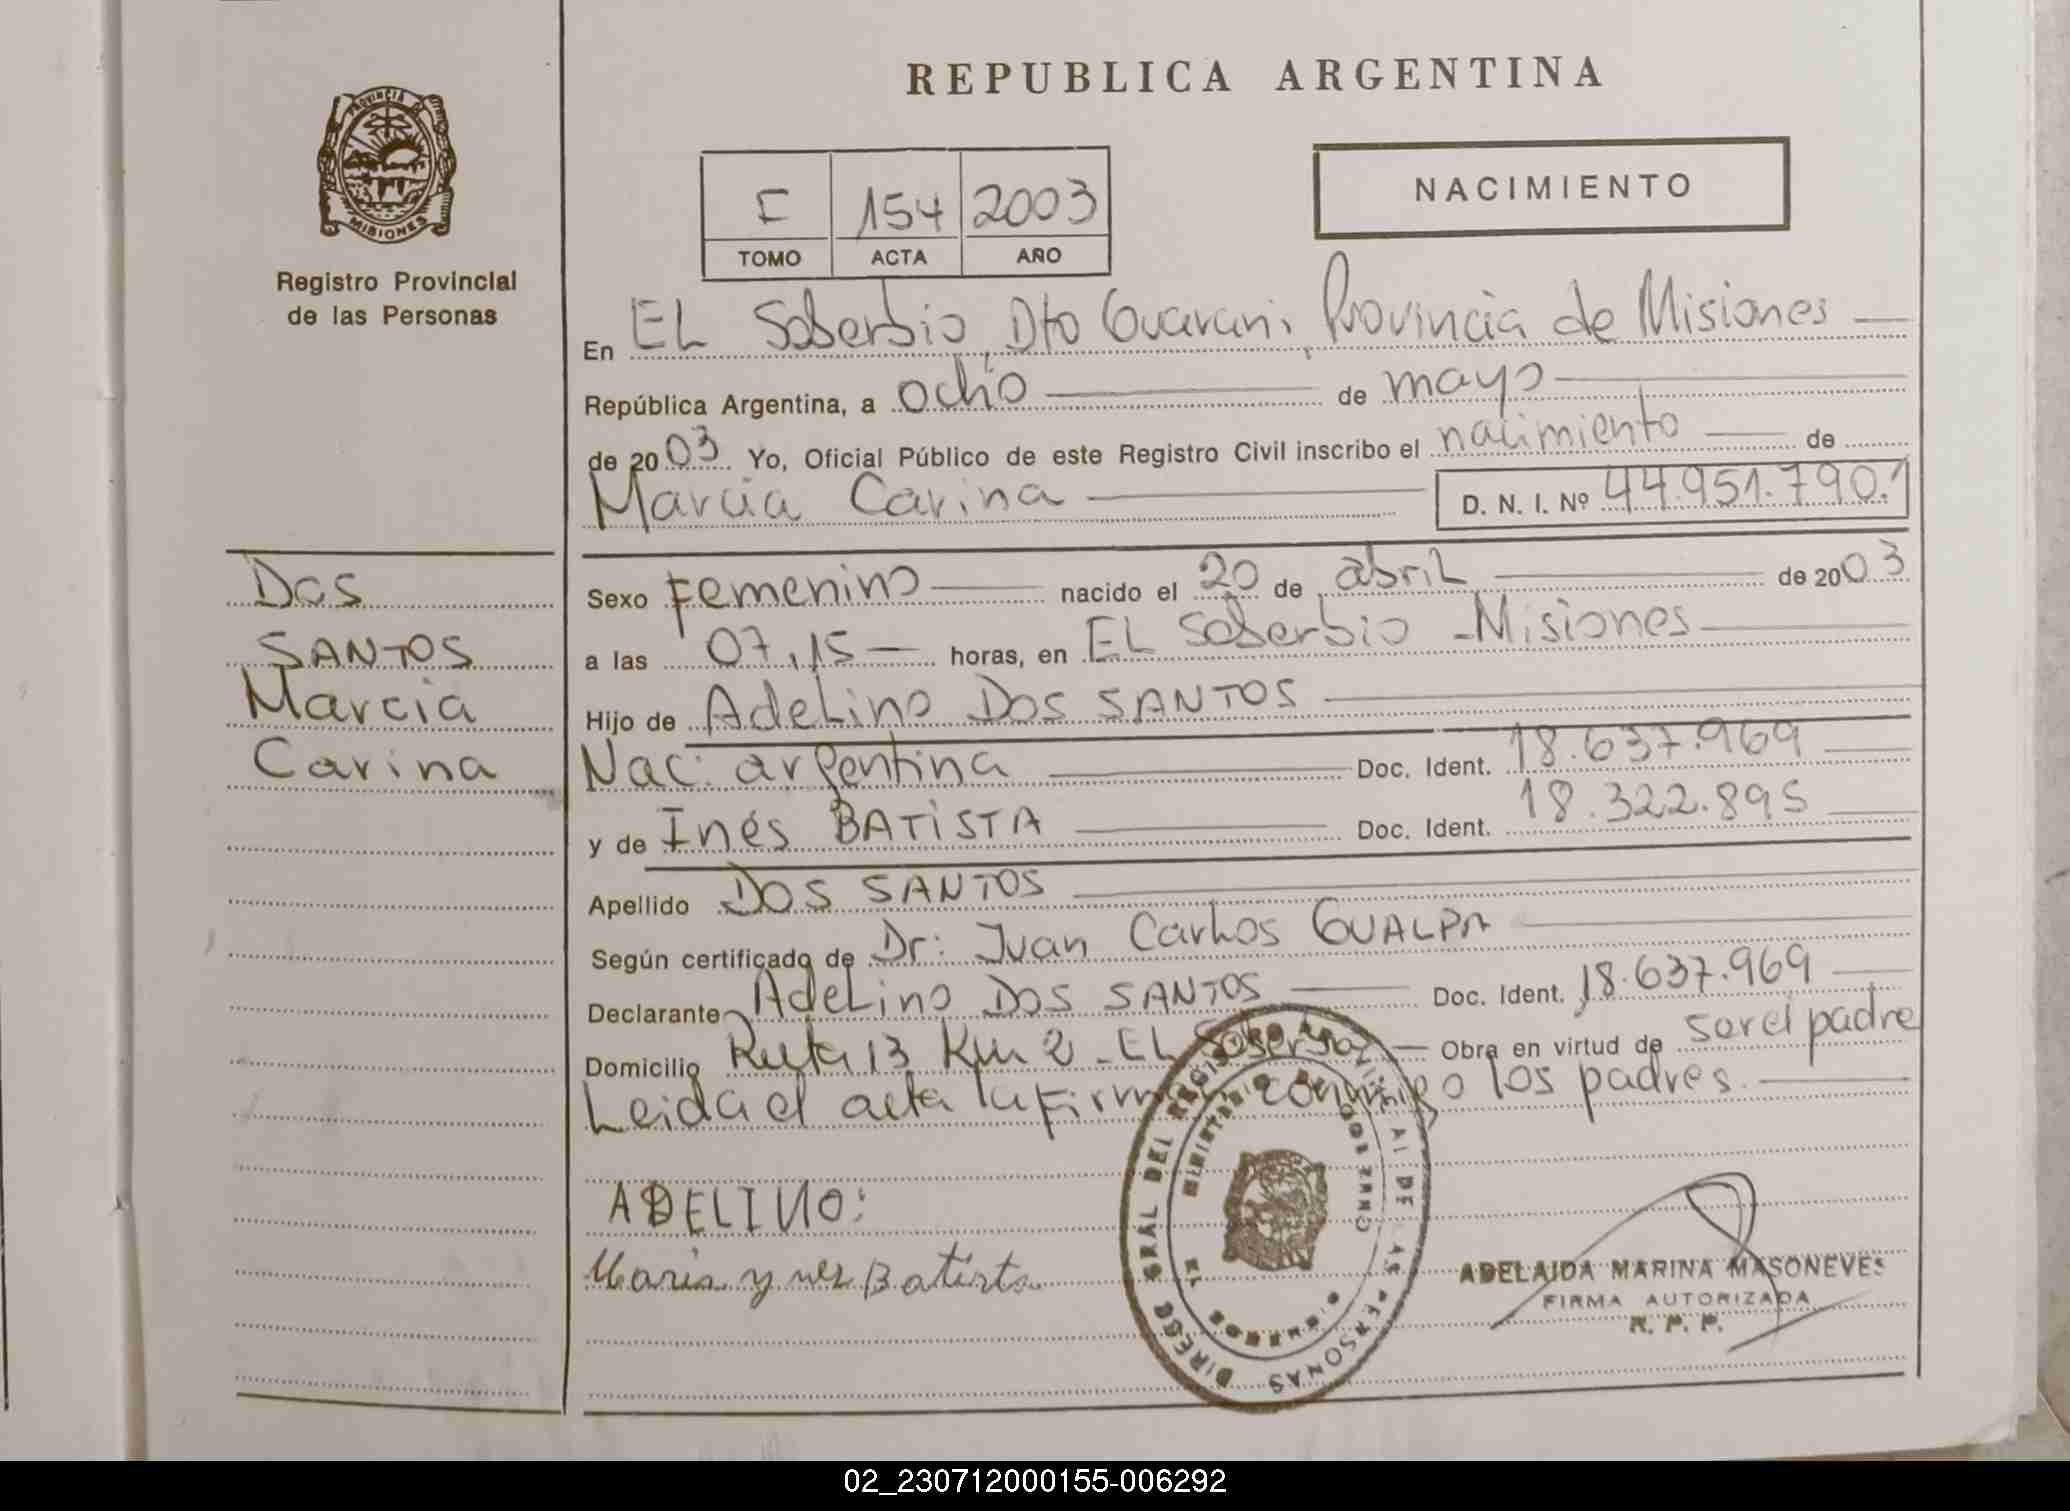 REPUBLICA ARGENTINA
PROVINCIA DE
MISIONES
Registro Provincial
de las Personas
I 154 2003
TOMO ACTA AÑO
NACIMIENTO
En EL Soberbio, Dto Guarani, Provincia de Misiones
República Argentina, a ocho de mayo
de 2003 Yo, Oficial Público de este Registro Civil inscribo el nacimiento de
Marcia Carina D. N. I. Nº 44.951.790.
Dos
SANTOS
Marcia
Carina
Sexo Femenino nacido el 20 de abril de 2003
a las 07,15 horas, en EL Soberbio - Misiones
Hijo de Adelino Dos SANTOS
Nac: argentina Doc. Ident. 18.637.969
y de Inés BATISTA Doc. Ident. 18.322.895
Apellido DOS SANTOS
Según certificado de Dr: Juan Carlos GUALPA
Declarante Adelino Dos SANTOS Doc. Ident. 18.637.969
Domicilio Ruta 13 Km 2 - EL Soberbio Obra en virtud de ser el padre
Leida el acta la firman conmigo los padres.
ADELINO:
Maria y nes Batista
DIREC. GRAL DEL REGISTRO PROVINCIAL DE LAS PERSONAS
MINISTERIO DE GOBIERNO
MISIONES
ADELAIDA MARINA MASONEVES
FIRMA AUTORIZADA
R. P. P.
02_230712000155-006292